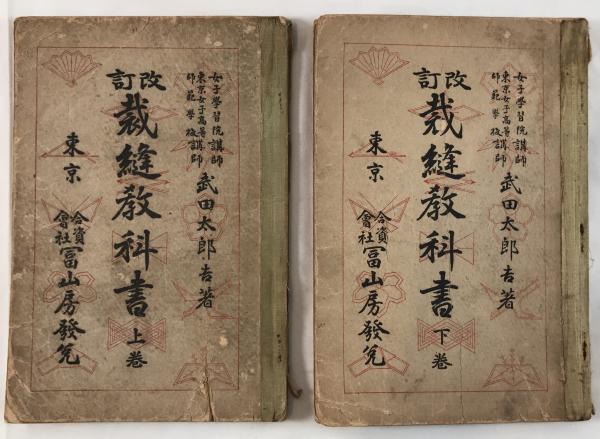 女子學習院講師
東京女子高等師範學校講師
武田太郎吉著
改訂
裁縫教科書 上卷
東京
合資會社 冨山房發兌
女子學習院講師
東京女子高等師範學校講師
武田太郎吉著
改訂
裁縫教科書 下卷
東京
合資會社 冨山房發兌